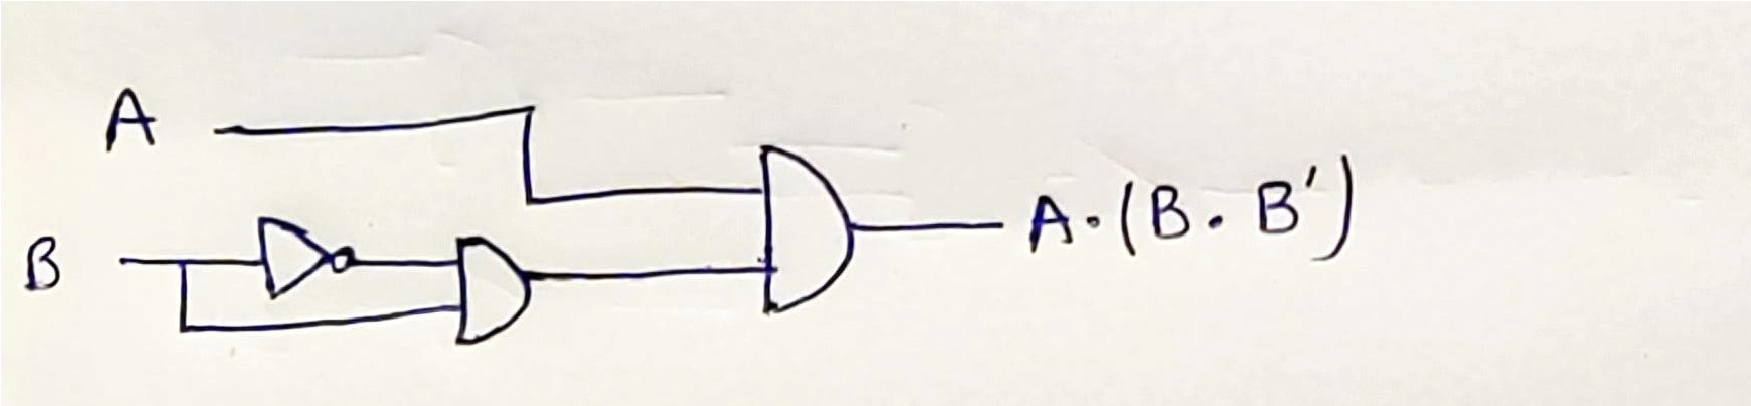 A
B
A·(B·B')